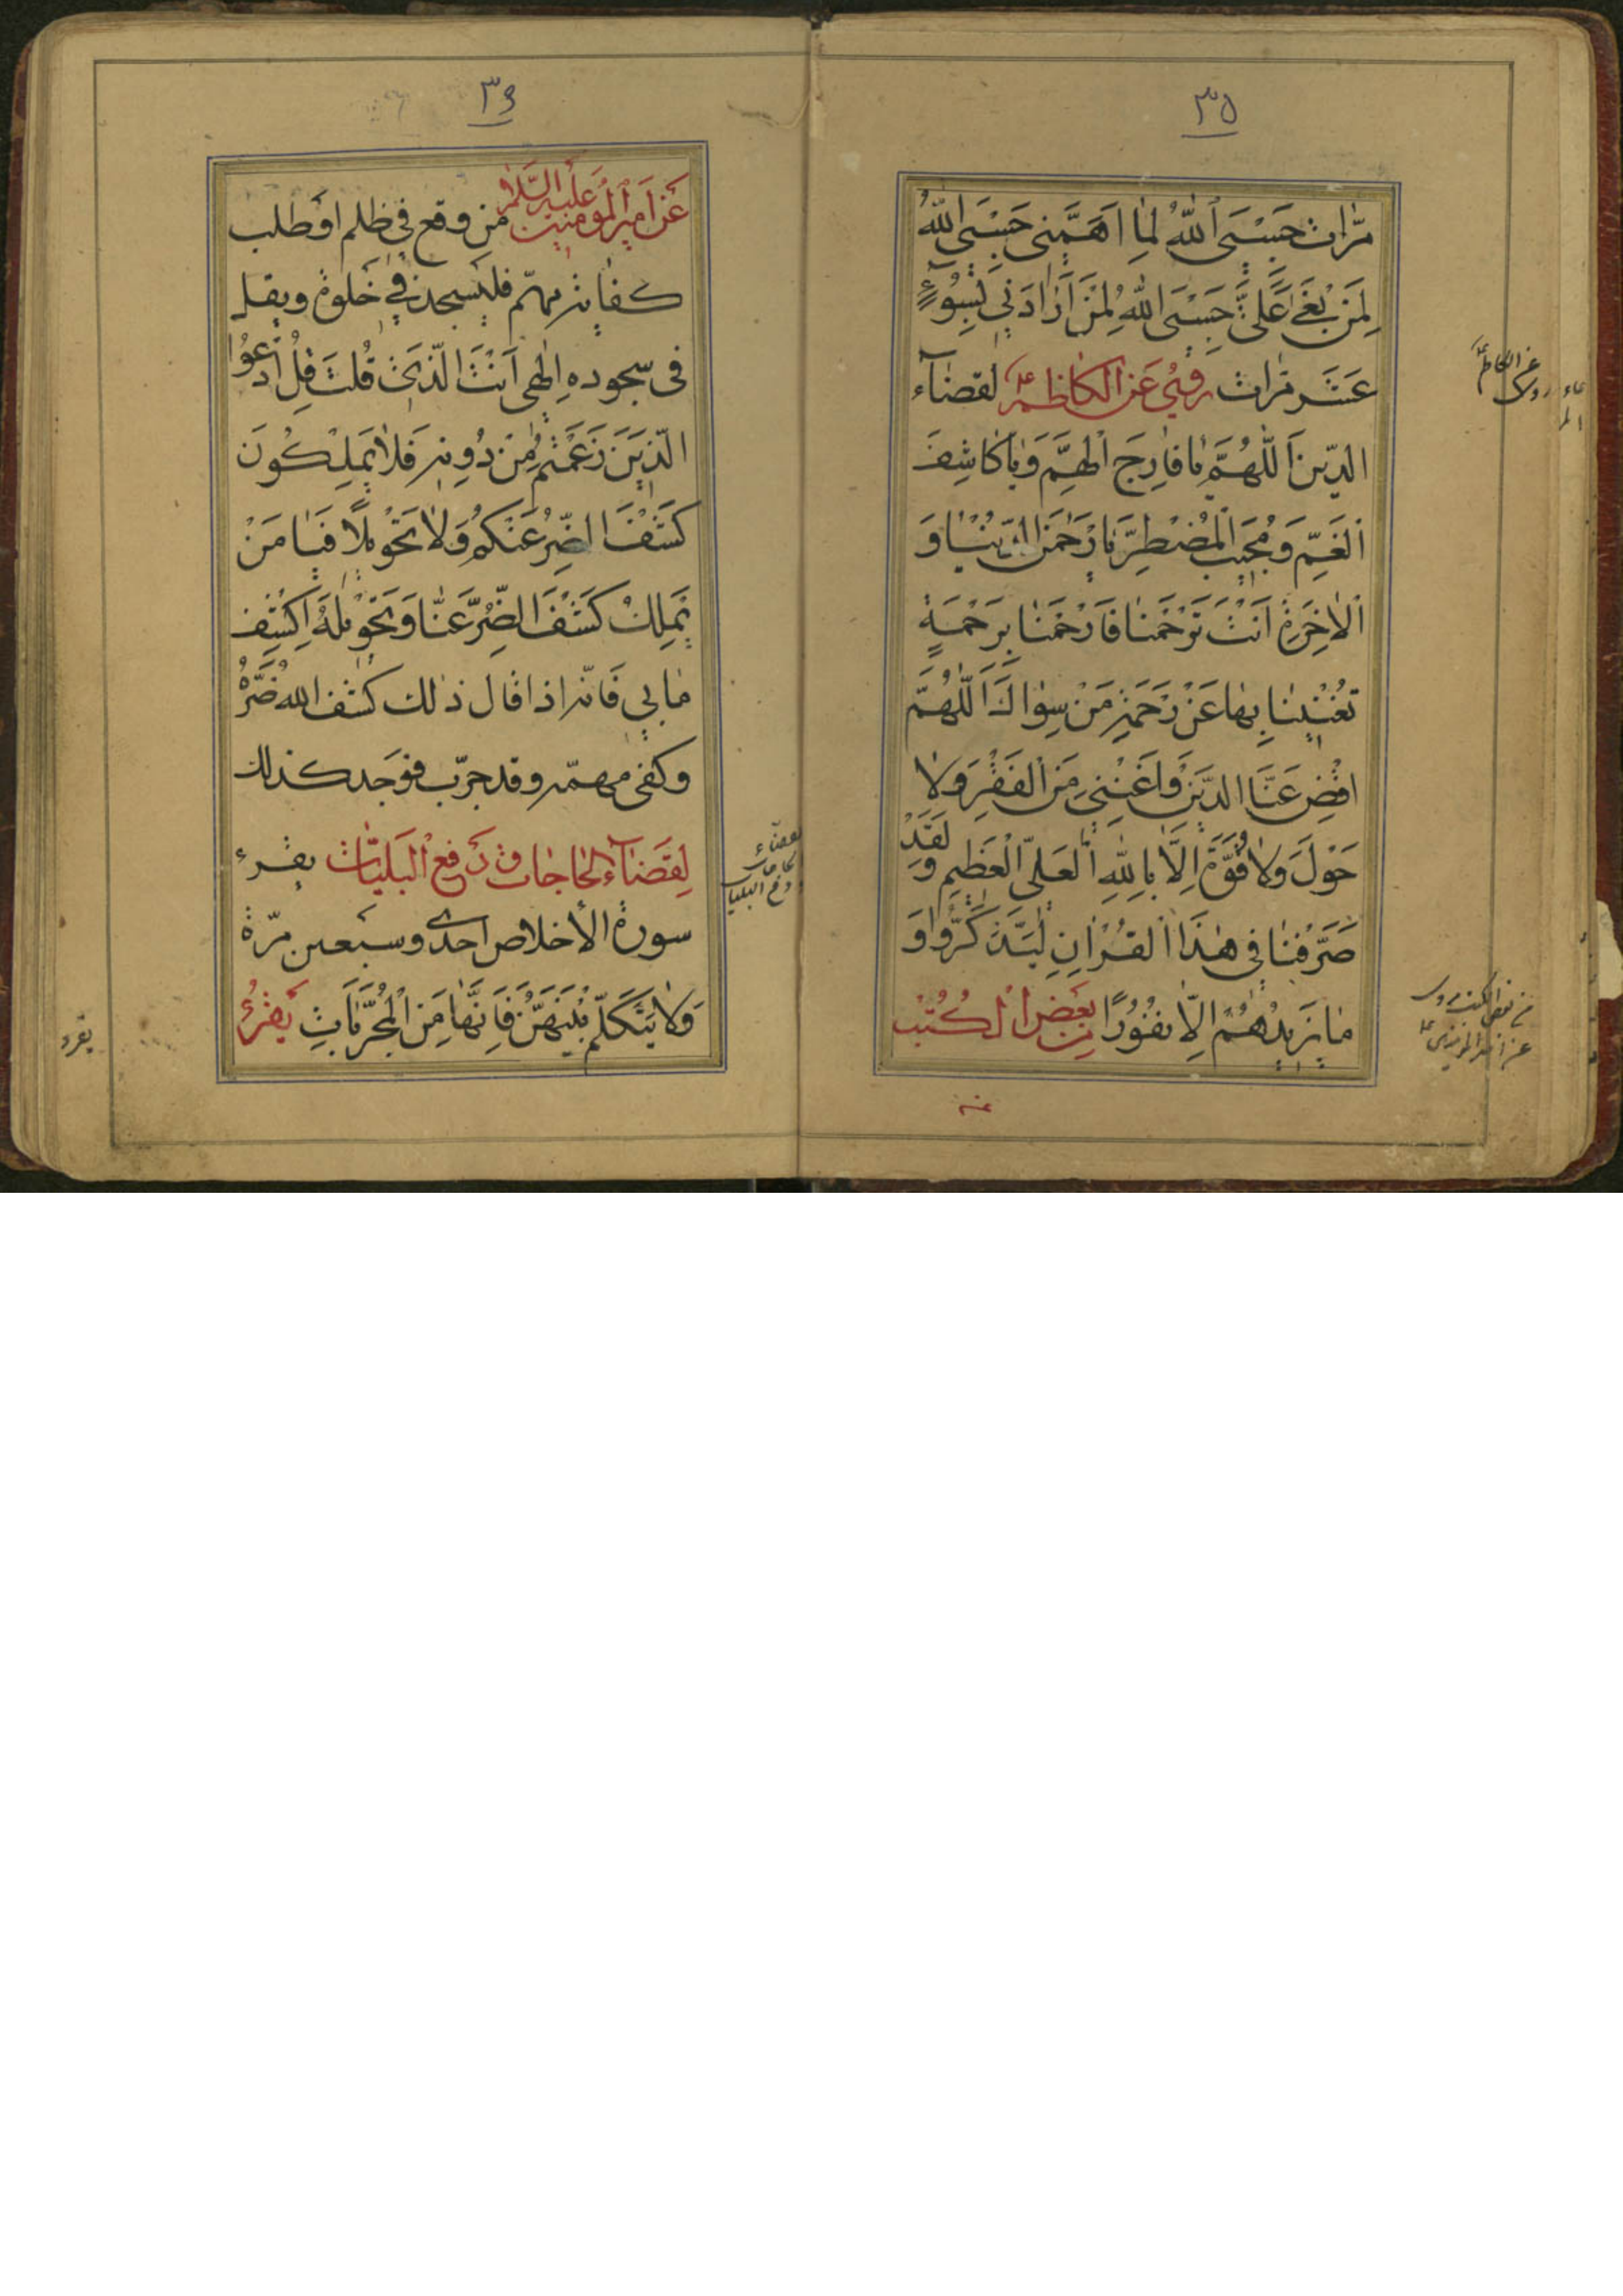 ٣٥
مَرّات حَسْبِيَ اللهُ لِمٰا اَهَمَّنِى حَسْبِيَ اللهُ
لِمَنْ بَغىٰ عَلَىَّ حَسْبِيَ اللهُ لِمَنْ اَرٰادَنِي بِسُوءٍ
عَشَر مَرّات رُوِيَ عَنِ الكاظِم ع لقضآء
الدّين اَللّٰهُمَّ يٰا فٰارِجَ الْهَمِّ وَيٰا كٰاشِفَ
اَلْغَمِّ وَ مُجيبَ الْمُضْطَرّ يٰا رَحْمٰنَ الدُّنْيٰا وَ
اَلْاٰخِرَةِ اَنْتَ تَرْحَمُنٰا فَارْحَمْنٰا بِرَحْمَةٍ
تُغْنِينٰا بِهٰا عَنْ رَحْمَةِ مَنْ سِوٰاكَ اَللّٰهُمَّ
اقْضِ عَنَّا الدَّيْنَ وَاَغْنِنِي مِنَ الْفَقْرِ وَلا
حَوْلَ وَلٰا قُوَّةَ اِلَّا بِاللهِ الْعَلِىّ الْعَظِيمِ وَ لَقَدْ
صَرَّفْنٰا فِي هٰذَا الْقُرْاٰنِ لِيَذَّكَّرُوا وَ
مٰا يَزيدُهُمْ اِلّا نُفُورًا مِن بَعْضِ الْكُتُبْ
عن الكاظم ع
روى
من بعض الكتب روى
عن امير المؤمنين ع
٣٦
عَنْ اَميرِ الْمُؤمِنين عَلَيهِ السَّلام مَن وقع في ظلم اَوْ طلب
كفاية مهمّ فليسجد في خلوة ويقل
فى سجوده اِلٰهى اَنْتَ الَّذِى قُلْتَ قُلِ ادْعُوا
الَّذِينَ زَعَمْتُمْ مِنْ دُونِه فَلاٰ يَمْلِكُونَ
كَشْفَ الضُّرِّ عَنْكُمْ وَلاٰ تَحْوِيلًا فَيٰا مَنْ
يَمْلِكُ كَشْفَ الضُّرِّ عَنّٰا وَ تَحْوِيلَهُ اِكْشِف
مٰا بي فَانّه اذا قال ذلك كشف الله ضُرَّهُ
وكفى مهمّه وقد جرّب فوجد كذلك
لِقَضآءِ الحٰاجات وَ دَفعِ الْبَليّات يقرء
سورة الأخلاص احدى وسبعين مرّة
وَلا يَتَكَلَّمُ بَيْنَهُنَّ فَاِنَّهٰا مِنَ الْمُجَرَّبٰاتِ يَقْرَءُ
لقضاء
الحاجات
و دفع البليات
يقرء